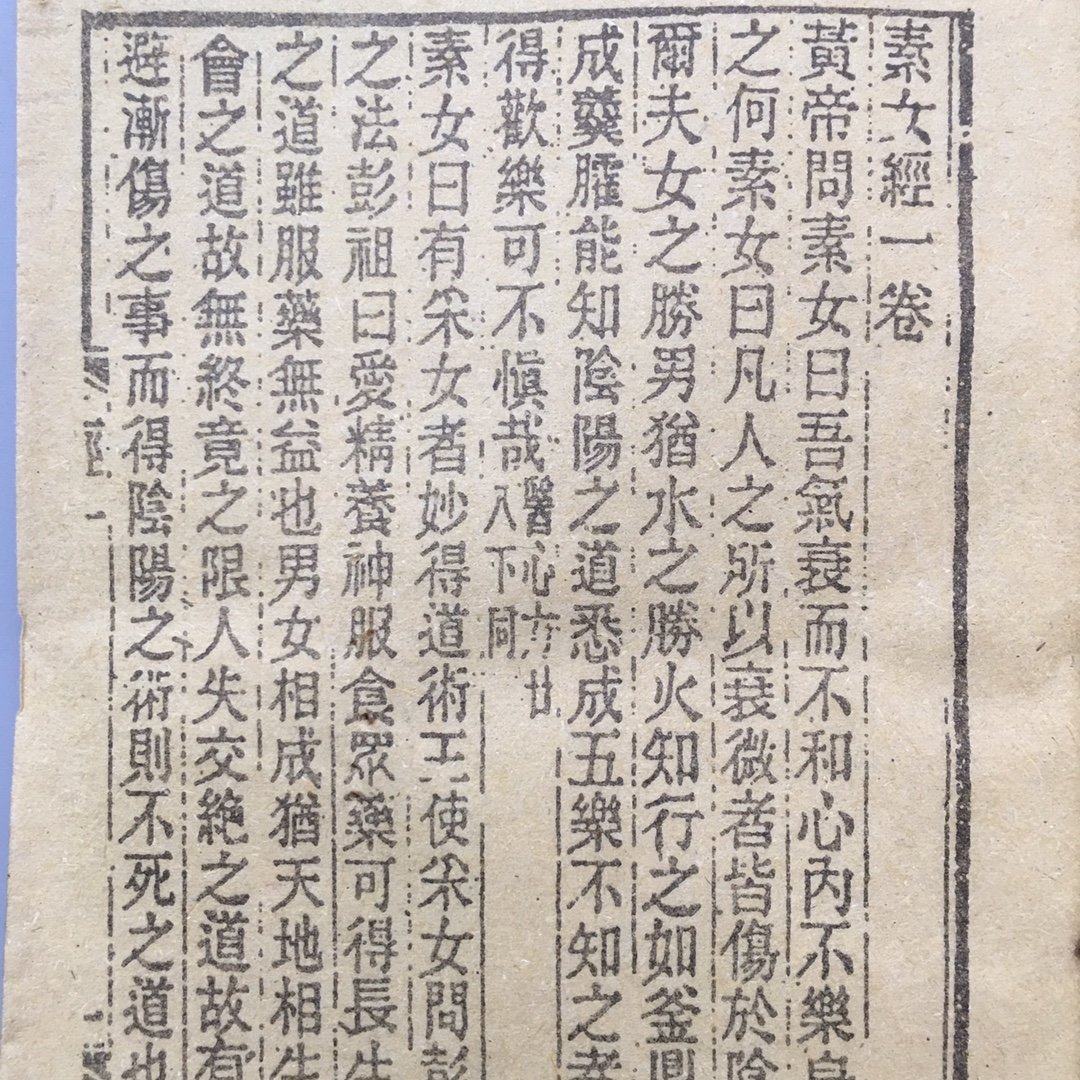 素女經一卷
黃帝問素女曰吾氣衰而不和心內不樂身
之何素女曰凡人之所以衰微者皆傷於陰
爾夫女之勝男猶水之勝火知行之如釜鼎
成羹臛能知陰陽之道悉成五樂不知之者
得歡樂可不慎哉醫心方廿八下同
素女曰有采女者妙得道術王使采女問彭
之法彭祖曰愛精養神服食眾藥可得長生
之道雖服藥無益也男女相成猶天地相生
會之道故無終竟之限人失交絕之道故有
避漸傷之事而得陰陽之術則不死之道也